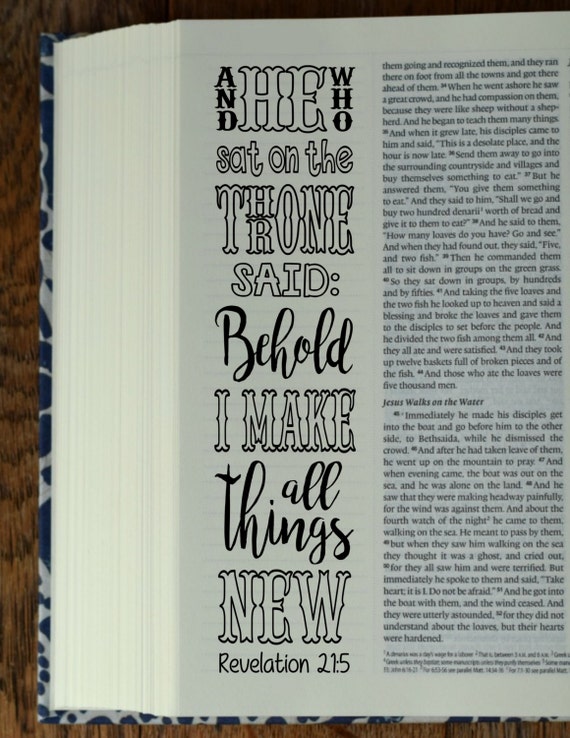 AND HE WHO
sat on the
THRONE
SAID:
Behold
I MAKE
all
things
NEW
Revelation 21:5
them going and recognized them, and they ran
there on foot from all the towns and got there
ahead of them. 34 When he went ashore he saw
a great crowd, and he had compassion on them,
because they were like sheep without a shep-
herd. And he began to teach them many things.
35 And when it grew late, his disciples came to
him and said, “This is a desolate place, and the
hour is now late. 36 Send them away to go into
the surrounding countryside and villages and
buy themselves something to eat.” 37 But he
answered them, “You give them something
to eat.” And they said to him, “Shall we go and
buy two hundred denarii¹ worth of bread and
give it to them to eat?” 38 And he said to them,
“How many loaves do you have? Go and see.”
And when they had found out, they said, “Five,
and two fish.” 39 Then he commanded them
all to sit down in groups on the green grass.
40 So they sat down in groups, by hundreds
and by fifties. 41 And taking the five loaves and
the two fish he looked up to heaven and said a
blessing and broke the loaves and gave them
to the disciples to set before the people. And
he divided the two fish among them all. 42 And
they all ate and were satisfied. 43 And they took
up twelve baskets full of broken pieces and of
the fish. 44 And those who ate the loaves were
five thousand men.
Jesus Walks on the Water
45 Immediately he made his disciples get
into the boat and go before him to the other
side, to Bethsaida, while he dismissed the
crowd. 46 And after he had taken leave of them,
he went up on the mountain to pray. 47 And
when evening came, the boat was out on the
sea, and he was alone on the land. 48 And he
saw that they were making headway painfully,
for the wind was against them. And about the
fourth watch of the night² he came to them,
walking on the sea. He meant to pass by them,
49 but when they saw him walking on the sea
they thought it was a ghost, and cried out,
50 for they all saw him and were terrified. But
immediately he spoke to them and said, “Take
heart; it is I. Do not be afraid.” 51 And he got into
the boat with them, and the wind ceased. And
they were utterly astounded, 52 for they did not
understand about the loaves, but their hearts
were hardened.
¹ A denarius was a day's wage for a laborer ² That is, between 3 A.M. and 6 A.M.